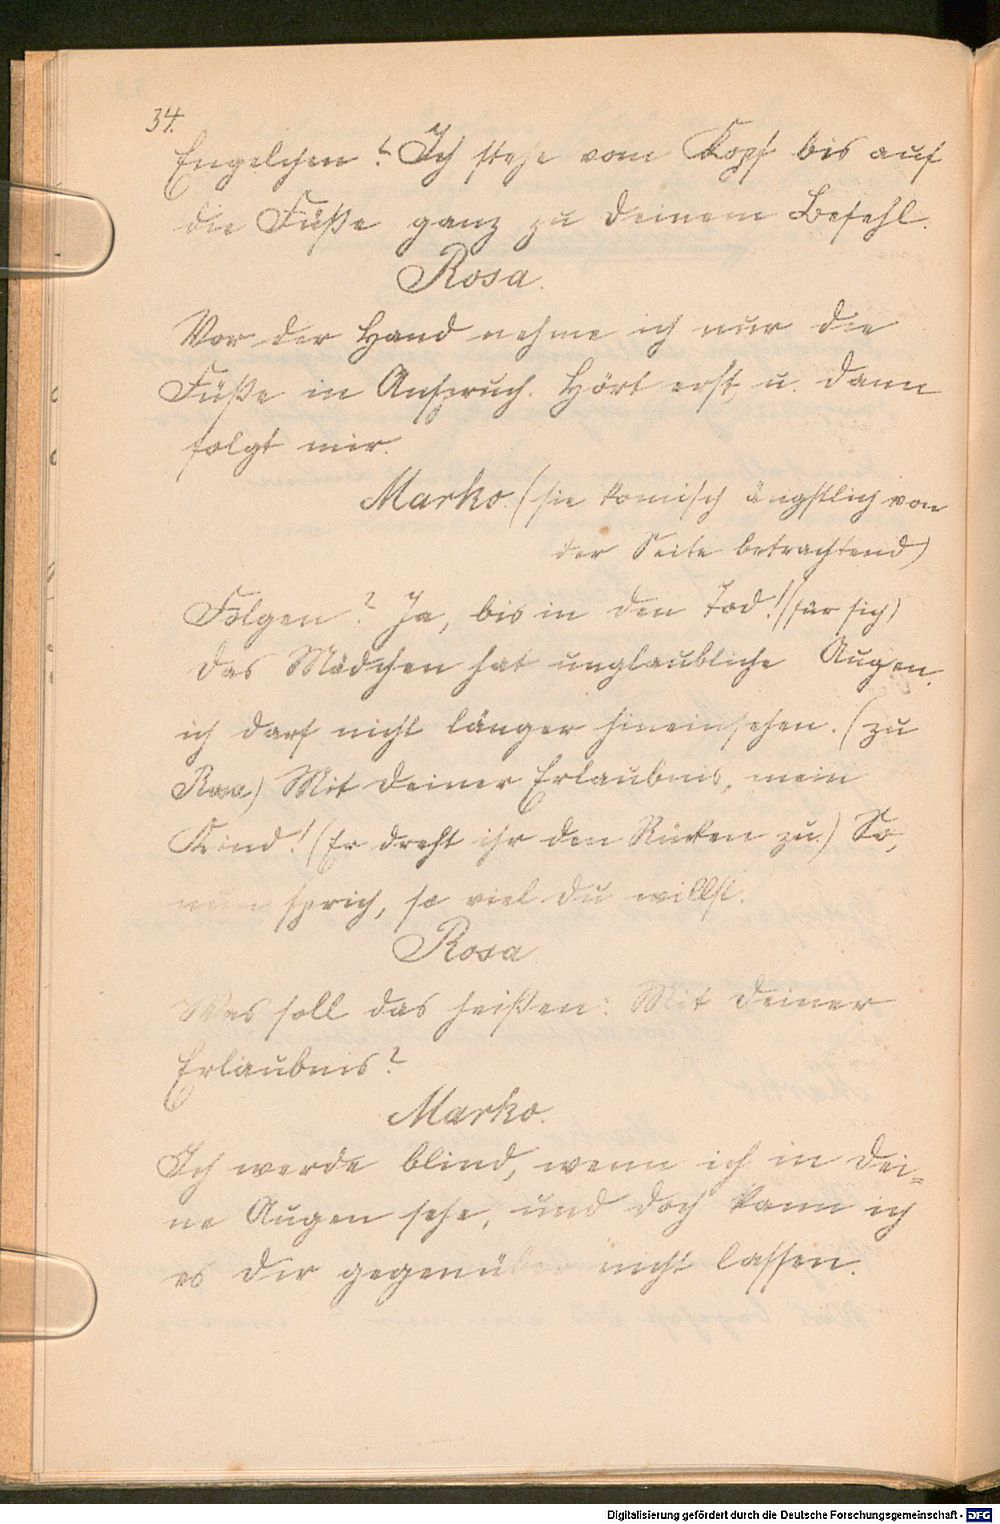 34.
Engelchen? Ich stehe vom Kopf bis auf
die Füße ganz zu deinem Befehl.
Rosa.
Vor der Hand nehme ich nur die
Füße in Anspruch. Hört erst u. dann
folgt mir.
Marko. (sie komisch ängstlich von
der Seite betrachtend)
Folgen? Ja, bis in den Tod! (für sich)
das Mädchen hat unglaubliche Augen.
ich darf nicht länger hineinsehen. (zu
Rosa) Mit deiner Erlaubnis, mein
Kind! (Er dreht ihr den Rücken zu.) So,
nun sprich, so viel du willst.
Rosa
Was soll das heißen: Mit deiner
Erlaubnis?
Marko.
Ich werde blind, wenn ich in dei-
ne Augen sehe, und doch kann ich
es dir gegenüber nicht lassen.
Digitalisierung gefördert durch die Deutsche Forschungsgemeinschaft - DFG